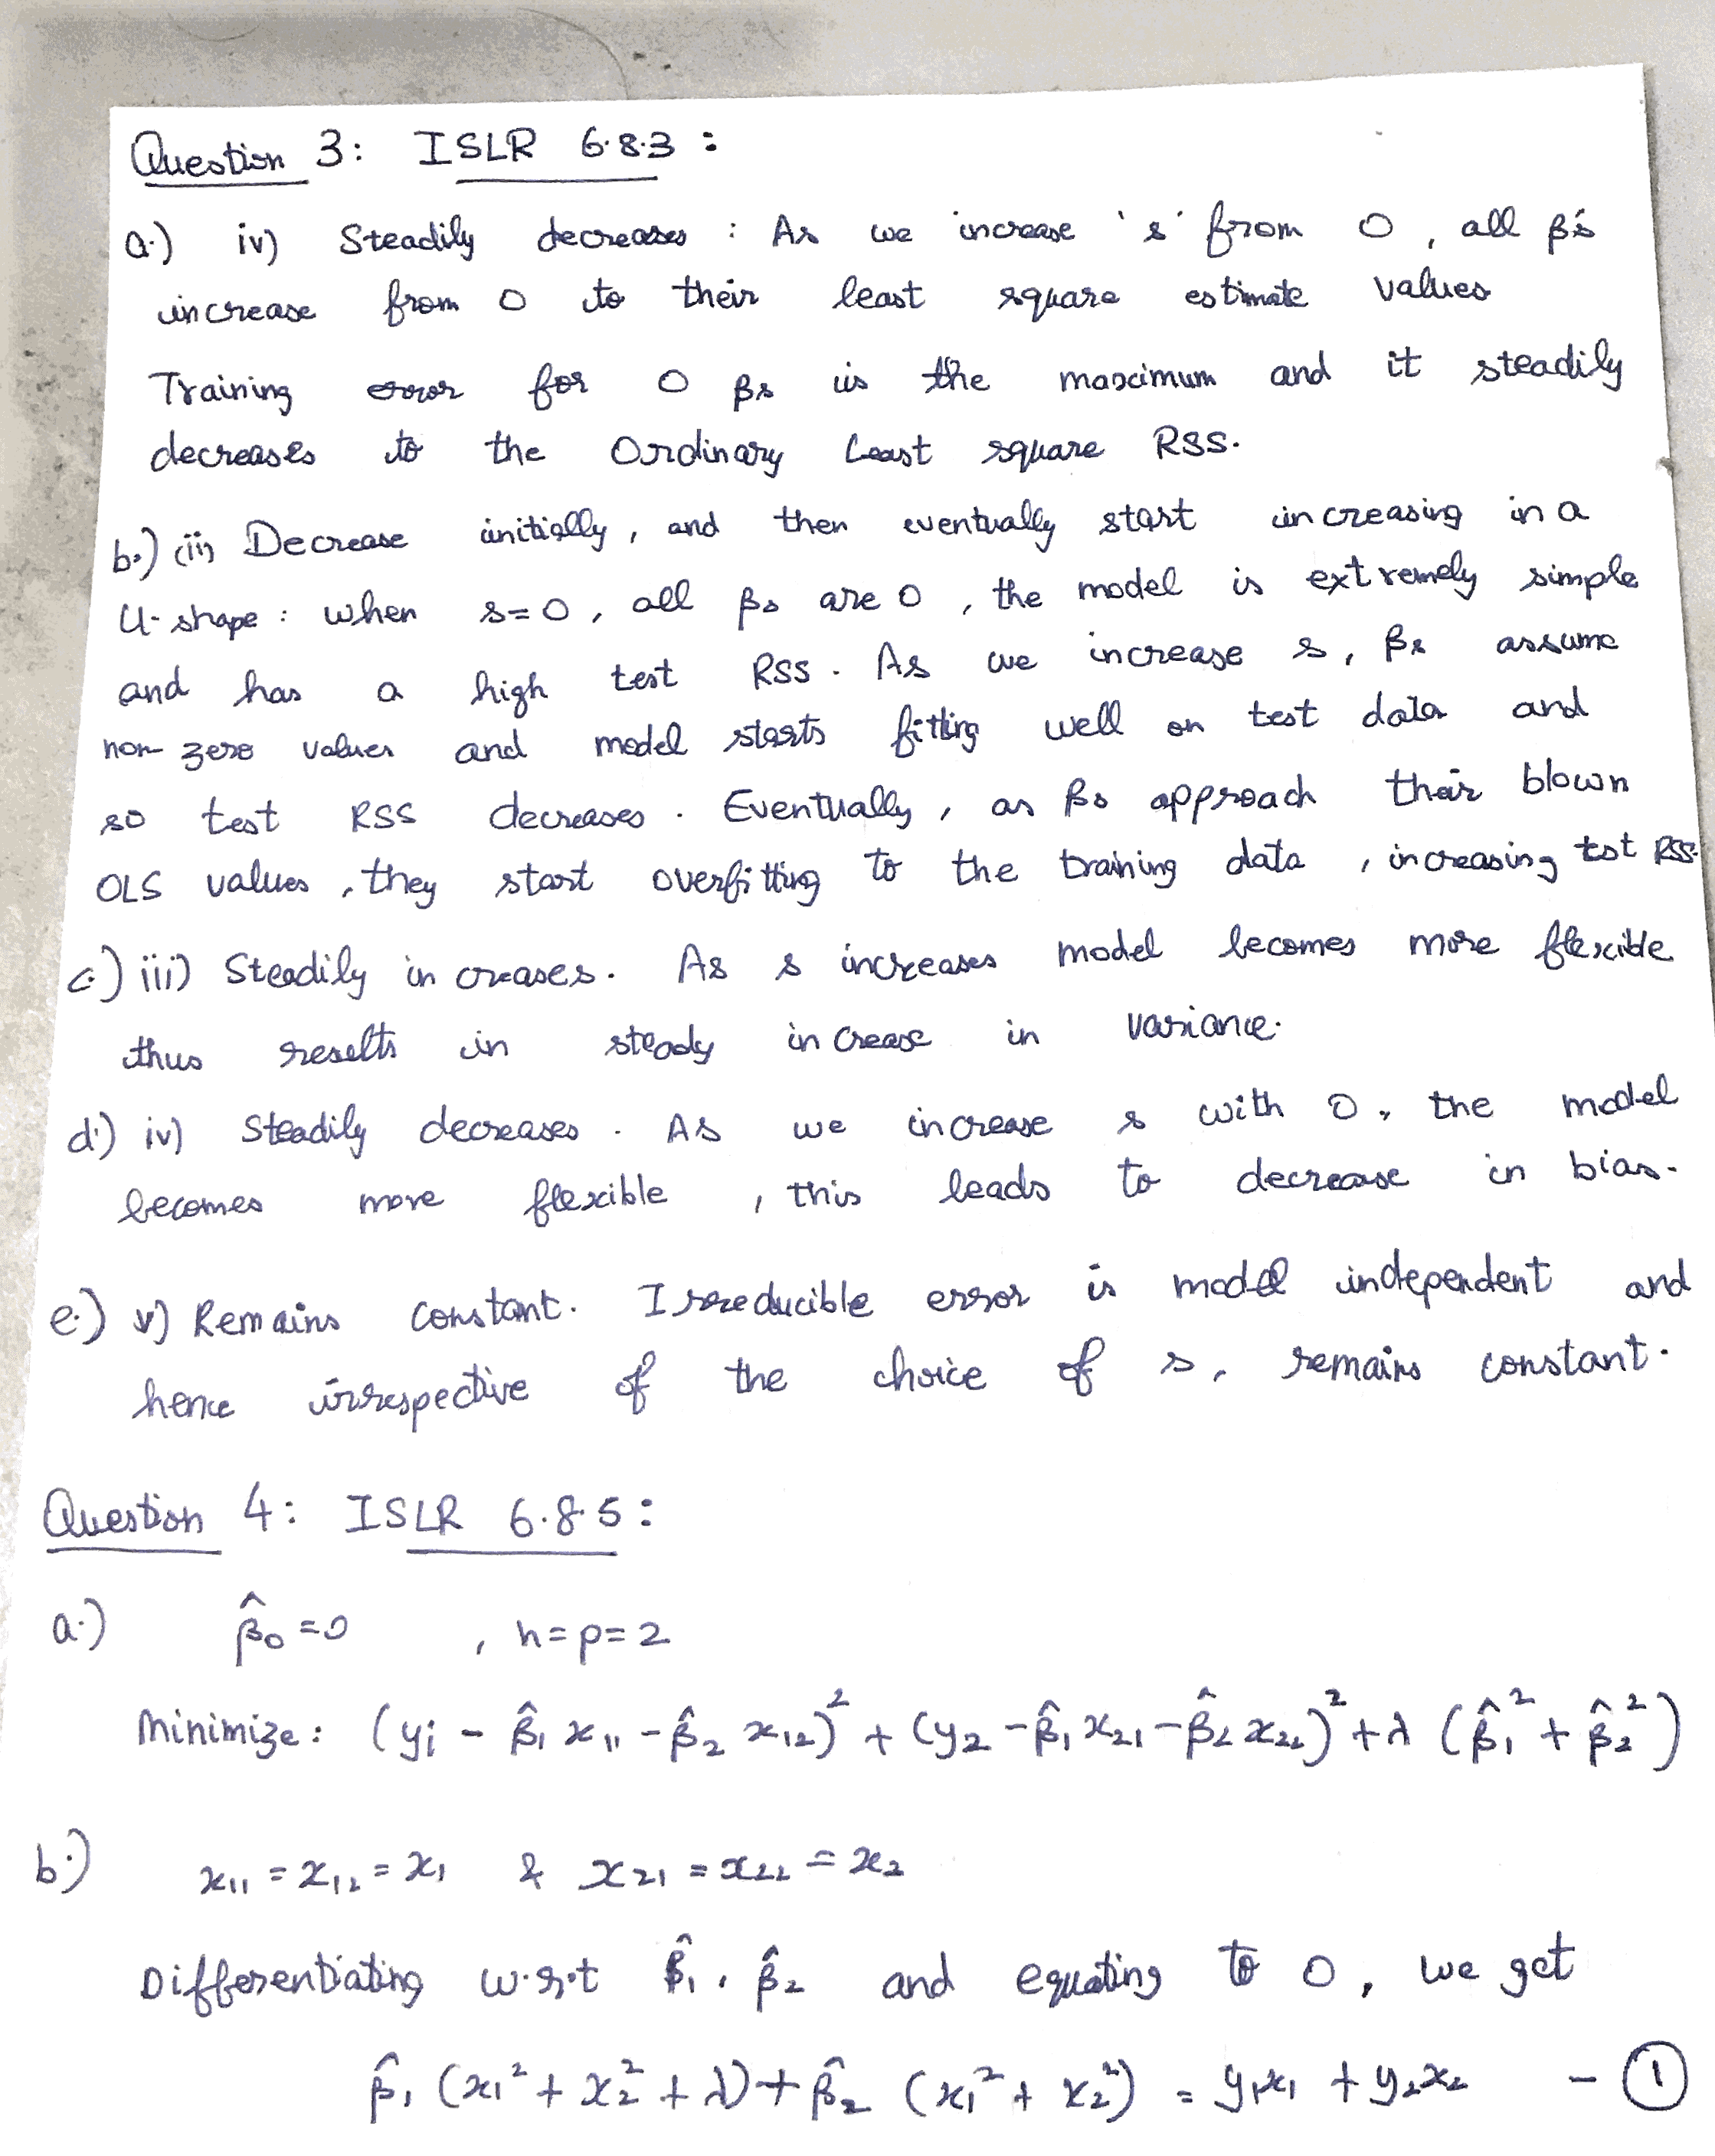 Question 3: ISLR 6.8.3 :
a.) iv) Steadily decreases : As we increase 's' from 0, all β's
increase from 0 to their least square estimate values
Training error for 0 βs is the maximum and it steadily
decreases to the Ordinary Least square RSS.
b.) (ii) Decrease initially, and then eventually start increasing in a
U-shape : when s=0, all βs are 0, the model is extremely simple
and has a high test RSS. As we increase s, βs assume
non-zero values and model starts fitting well on test data and
so test RSS decreases. Eventually, as βs approach their blown
OLS values, they start overfitting to the training data, increasing tst RSS.
c.) iii) Steadily increases. As s increases model becomes more flexible
thus results in steady increase in variance.
d.) iv) Steadily decreases. As we increase s with 0, the model
becomes more flexible, this leads to decrease in bias.
e.) v) Remains constant. Irreducible error is model independent and
hence irrespective of the choice of s, remains constant.
Question 4: ISLR 6.8.5:
a.) β̂₀ = 0, n=p=2
Minimize: (yi - β̂₁ x₁₁ - β̂₂ x₁₂)² + (y₂ - β̂₁ x₂₁ - β̂₂ x₂₂)² + λ (β̂₁² + β̂₂²)
b.) x₁₁ = x₁₂ = x₁ & x₂₁ = x₂₂ = x₂
Differentiating w.r.t β̂₁, β̂₂ and equating to 0, we get
β̂₁ (x₁² + x₂² + λ) + β̂₂ (x₁² + x₂²) = y₁x₁ + y₂x₂ - ①